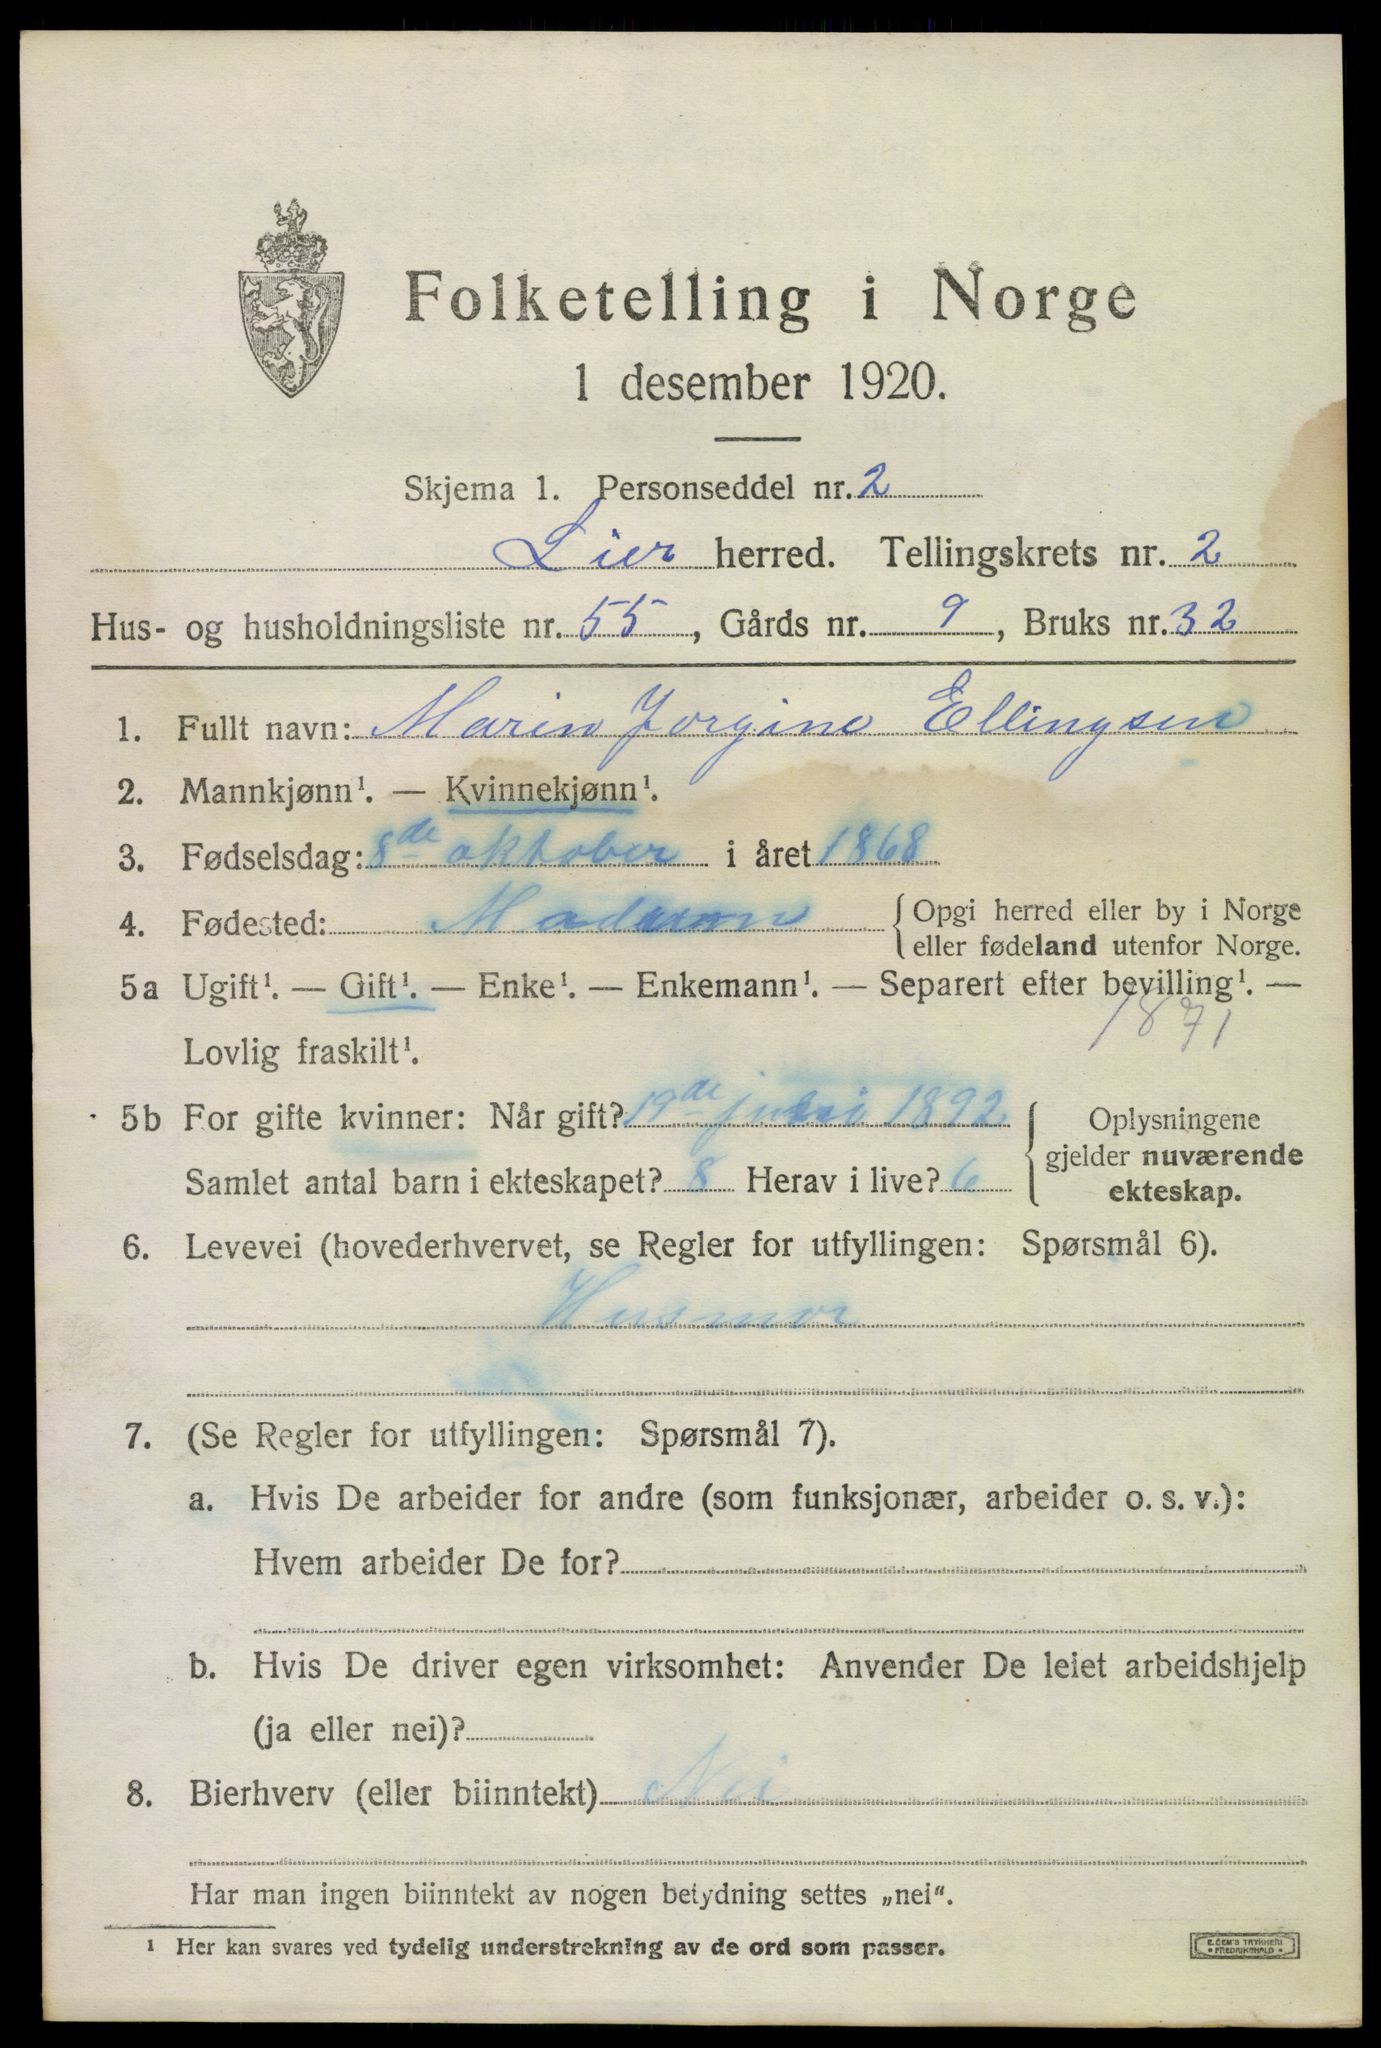 Folketelling i Norge
1 desember 1920.
Skjema 1. Personseddel nr. 2
Lier herred. Tellingskrets nr. 2
Hus- og husholdningsliste nr. 55, Gårds nr. 9, Bruks nr. 32
1. Fullt navn: Marin Jorgine Ellingsen
2. Mannkjønn¹. — Kvinnekjønn¹.
3. Fødselsdag: 8de oktober i året 1868
4. Fødested: Modum {Opgi herred eller by i Norge
eller fødeland utenfor Norge.
5a Ugift¹. — Gift¹. — Enke¹. — Enkemann¹. — Separert efter bevilling¹. —
Lovlig fraskilt¹. 1871
5b For gifte kvinner: Når gift? 19de juli 1892
Samlet antal barn i ekteskapet? 8 Herav i live? 6
{Oplysningene
gjelder nuværende
ekteskap.
6. Levevei (hovederhvervet, se Regler for utfyllingen: Spørsmål 6).
Husmor
7. (Se Regler for utfyllingen: Spørsmål 7).
a. Hvis De arbeider for andre (som funksjonær, arbeider o. s. v.):
Hvem arbeider De for?
b. Hvis De driver egen virksomhet: Anvender De leiet arbeidshjelp
(ja eller nei)?
8. Bierhverv (eller biinntekt) Nei
Har man ingen biinntekt av nogen betydning settes „nei“.
¹ Her kan svares ved tydelig understrekning av de ord som passer.
E. SEM'S TRYKKERI
FREDRIKSHALD